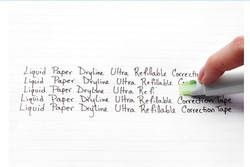 Liquid Paper Dryline Ultra Refillable Correction
Liquid Paper Dryline Ultra Refillable Co
Liquid Paper Dryline Ultra Refi
Liquid Paper Dryline Ultra Refillable Correction Tape
Liquid Paper Dryline Ultra Refillable Correction Tape